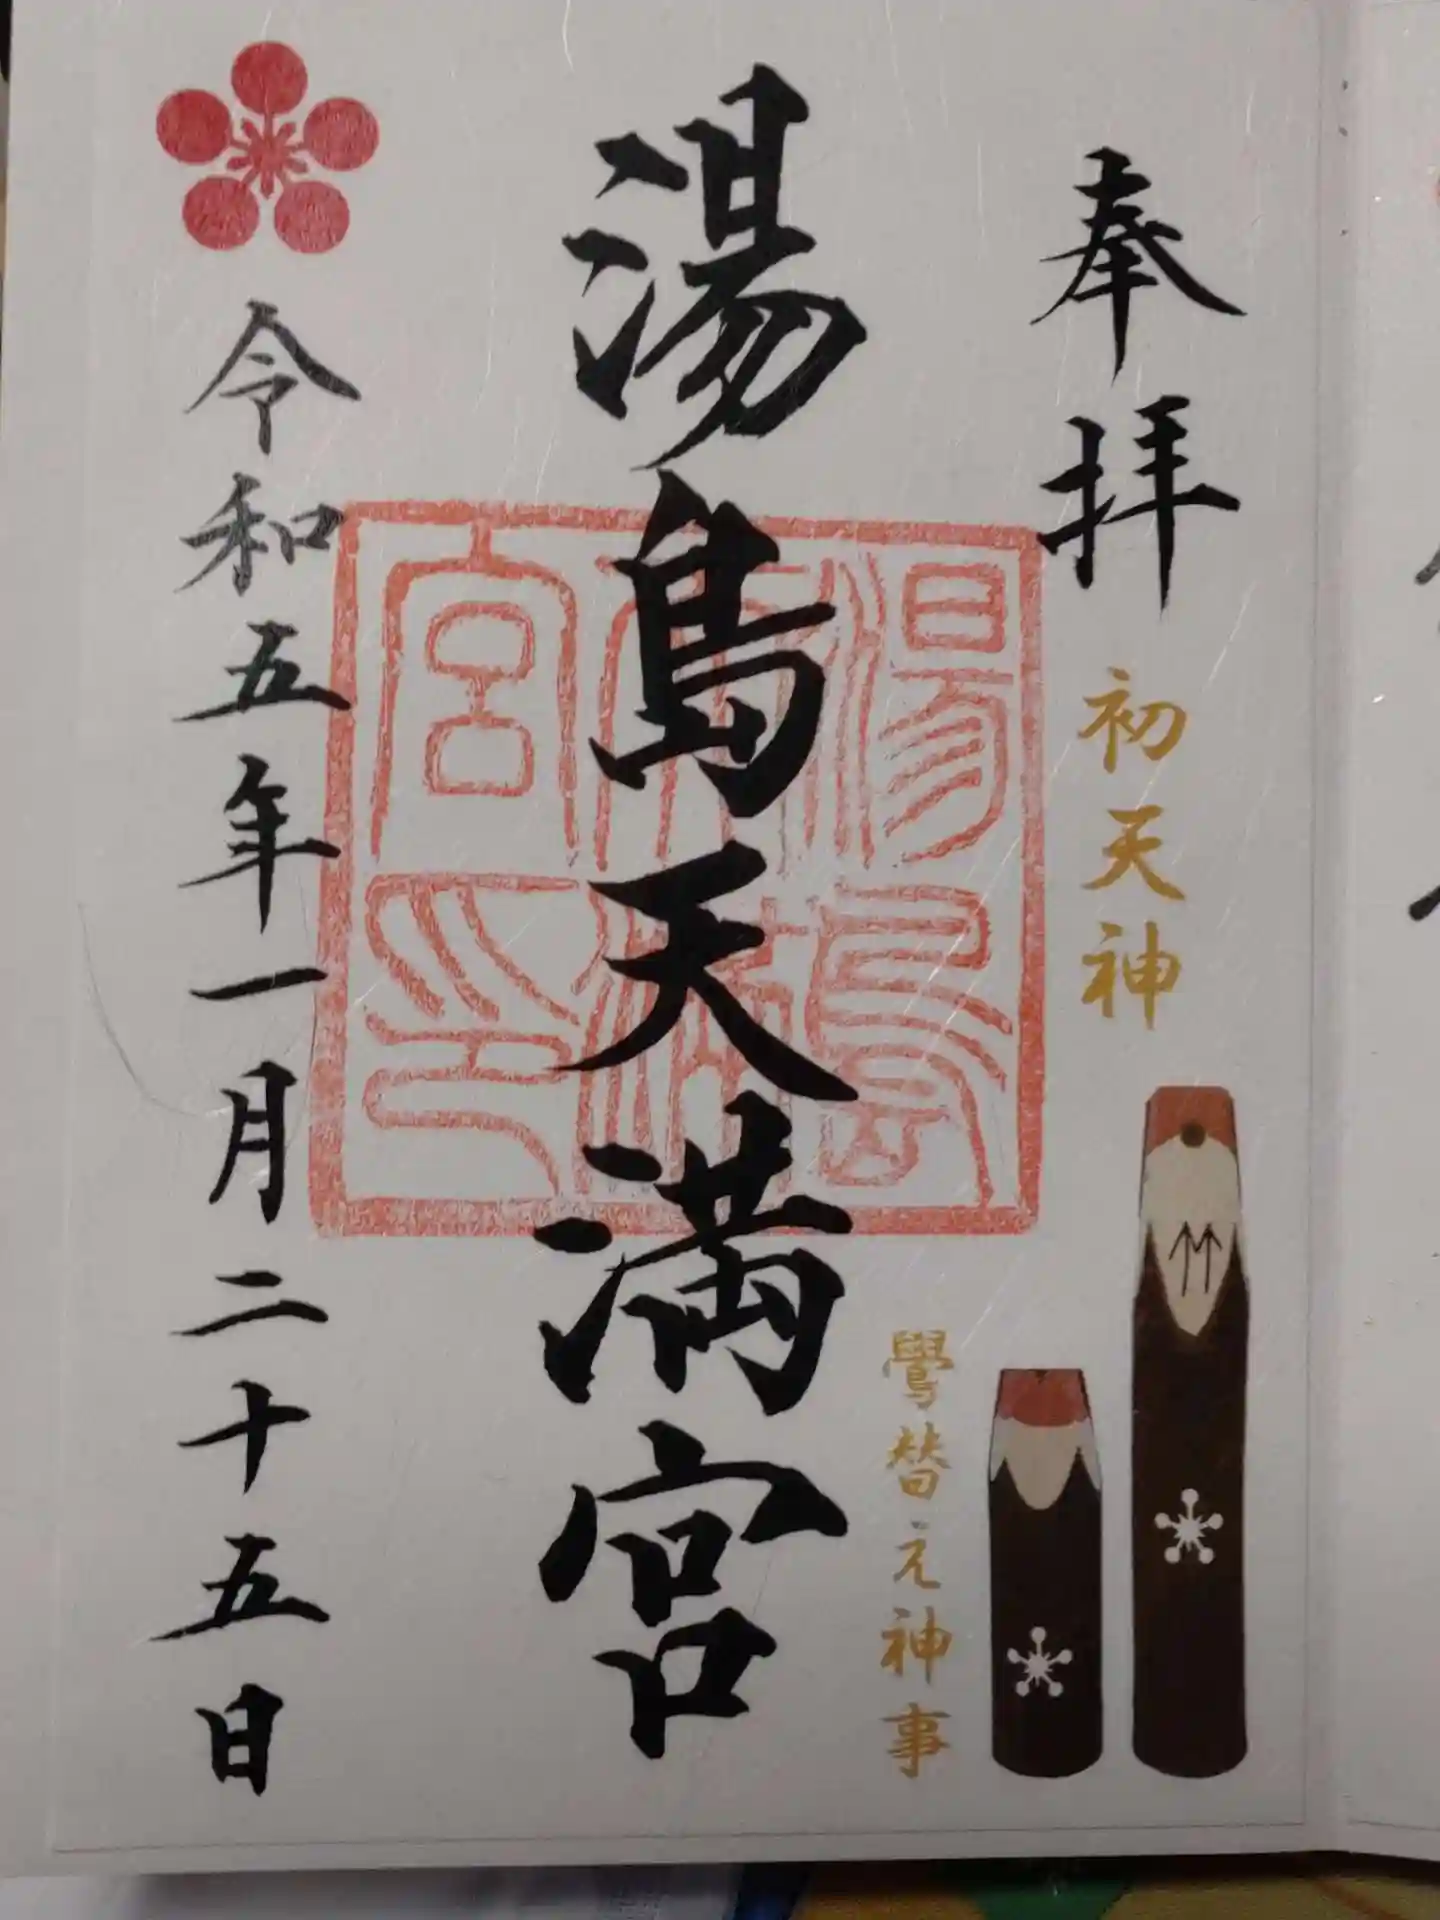 奉拝
初天神
湯島天満宮
鷽替え神事
湯島天満宮印
令和五年一月二十五日